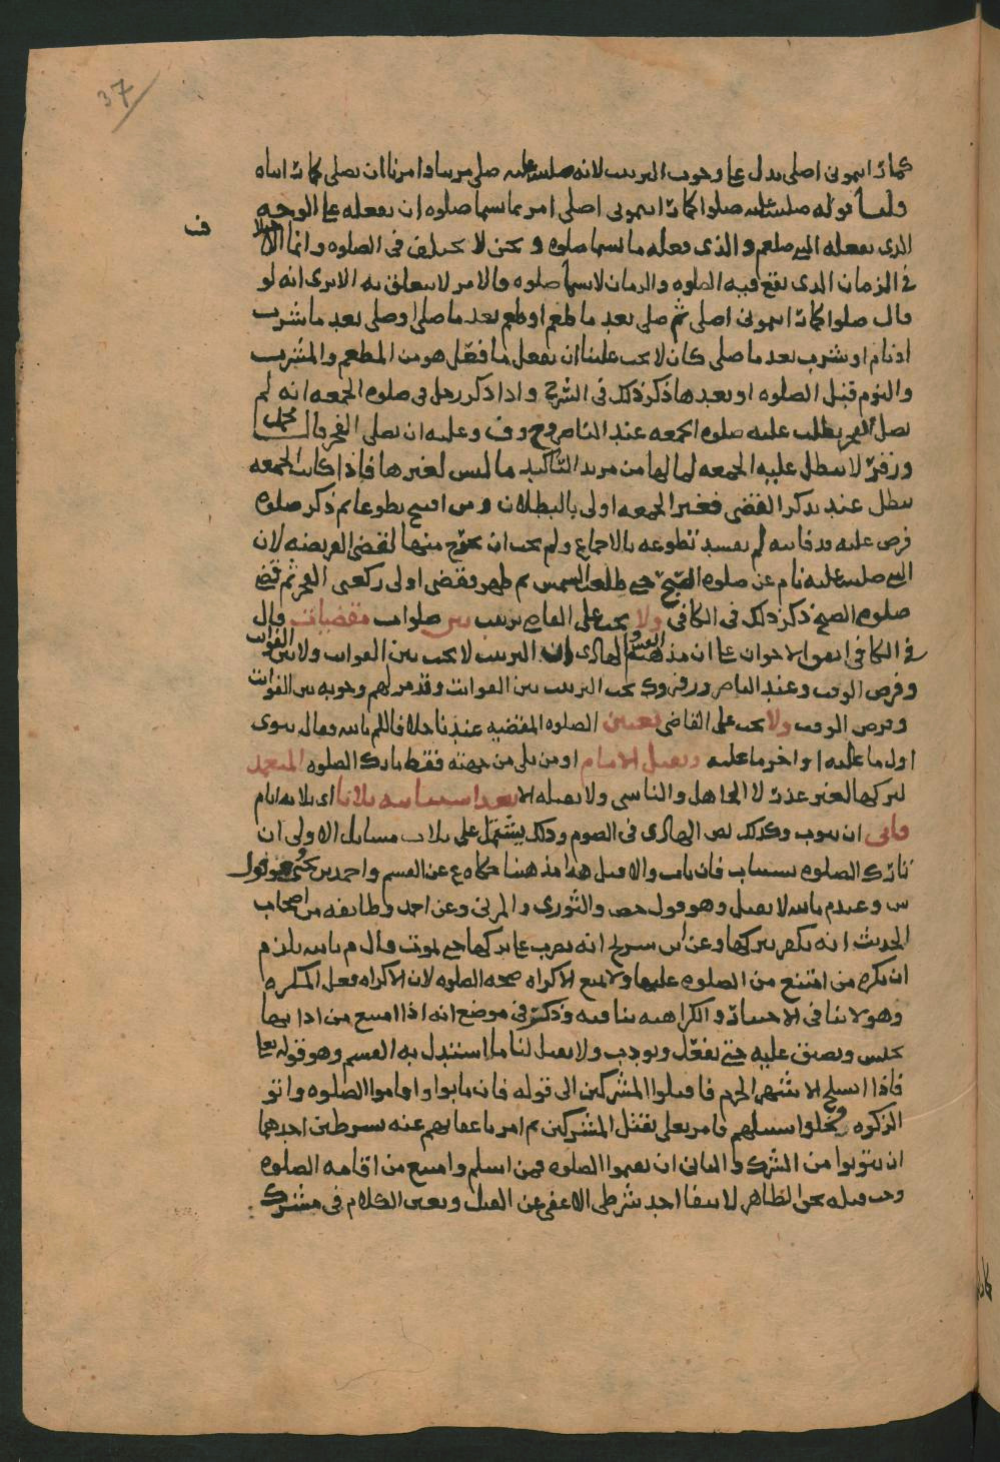 37
كما رايتموني اصلي يدل على وجوب الترتيب لانه صلى الله عليه صلى مرتبا وامرنا ان نصلي كما رايناه
ولنا قوله صلى الله عليه صلوا كما رايتموني اصلي امر بما يسما صلوه ان نفعله على الوجه
الذي يفعله النبي صلعم والذي فعله ما يسما صلوه ونحن لا نخالف في الصلوه وانما
ف
في الزمان الذي تقع فيه الصلوه والزمان لا يسما صلوه والامر لا يتعلق به الا ترى انه لو
قال صلوا كما رايتموني اصلي ثم صلى بعد ما طعم او طعم بعد ما صلى او صلى بعد ما شرب
او نام او شرب بعد ما صلى كان لا يجب علينا ان نفعل ما فعل هو من المطعم والمشرب
والنوم قبل الصلوه او بعدها ذكر ذلك في الشرح واذا ذكر رجل في صلوه الجمعه انه لم
يصل الفجر بطلت عليه صلوه الجمعه عند الناصر وح وف وعليه ان يصلي الفجر قال محمد
وزفر لا تبطل عليه الجمعه لما لها من مزيد التاكيد ما ليس لغيرها فاذا كانت الجمعه
تبطل عند بذكر الفضي فغير الجمعه اولى بالبطلان ومن افتتح تطوعا ثم ذكر صلوه
فرض عليه قد فاتته لم يفسد تطوعه بالاجماع ولم يجب ان يخرج منها لقضى الفريضه لان
النبي صلى الله عليه نام عن صلوه الصبح حتى طلعت الشمس ثم طهر وقضى اولى ركعتي الفجر ثم قضى
صلوه الصبح ذكر ذلك في الكافي ولا يجب على القاضي ترتيب بين صلوات مقضيات قال
في الكافي اتفق الاخوان على ان مذهب الهادي ان الترتيب لا يجب بين الفوايت ولا بين الفوايت
وفرض الوقت وعند الناصر وزفر وك يجب الترتيب بين الفوايت وقد مر لهم وجوبه بين الفوايت
وفرض الوقت ولا يجب على القاضي تعيين الصلوه المقضيه عندنا خلافا للم بالله وقال ينوى
اول ما عليه او اخر ما عليه ويقتل الامام او من يلى من جهته فقط تارك الصلوه المتعمد
لتركها لغير عذر لا الجاهل والناسي ولا يقتله الا بعد استتابته ثلاثا اي ثلاثه ايام
فابى ان يتوب وكذلك نص الهادي في الصوم وذلك يشتمل على ثلاث مسايل الاولى ان
تارك الصلوه يستتاب فان تاب والا قتل هذا مذهبنا حكاه ع عن القسم واحمد بن يحيى وهو قول
س وعندم بالله لا يقتل وهو قول حص والثوري والمزني وعن احمد وطايفه من اصحاب
الحديث انه يكفر بتركها وعن ابن سريج انه يضرب على تركها حتى يموت وقال م بالله يلزم
ان يكره من امتنع من الصلوه عليها ولا يمنع الاكراه صحه الصلوه لان الاكراه فعل المكره
وهو لا ينافي الاختيار والكراهيه تنافيه وذكر في موضع انه اذا امتنع من اداءها
يحبس ويضيق عليه حتى يفعل ويودب ولا يقتل لنا ما استدل به القسم وهو قوله تعالى
فاذا انسلخ الاشهر الحرم فاقتلوا المشركين الى قوله فان تابوا واقاموا الصلوه واتو
الزكوه فخلوا سبيلهم فامر تعلى بقتل المشركين ثم امر باعفايهم عنه بشرطين احدهما
ان يتوبوا من الشرك والثاني ان يقيموا الصلوه فمن اسلم وامتنع من اقامه الصلوه
وجب قتله بحق الظاهر لانتفا احد شرطي الاعفى عن القتل وبعض الكلام في مشترك